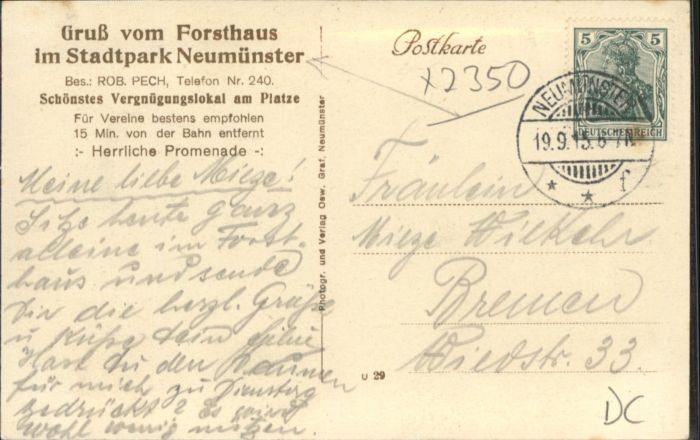 Gruß vom Forsthaus
im Stadtpark Neumünster
Bes.: ROB. PECH, Telefon Nr. 240.
Schönstes Vergnügungslokal am Platze
Für Vereine bestens empfohlen
15 Min. von der Bahn entfernt
:- Herrliche Promenade -:
Meine liebe Mieze!
Sitze heute ganz
alleine im Forst-
haus und sende
Dir die herzl. Grüße
u. Küsse Dein
Hast Du den Daumen
für mich zu Dienstag
gedrückt? Es wird
wohl wenig nützen.
Photogr. und Verlag Osw. Graf, Neumünster
Postkarte
x2350
5 5
DEUTSCHES REICH
NEUMÜNSTER
19.9.15. 6-7N.
* * f
Fräulein
Mieze
Bremen
Wiedstr. 33.
U 29
DC